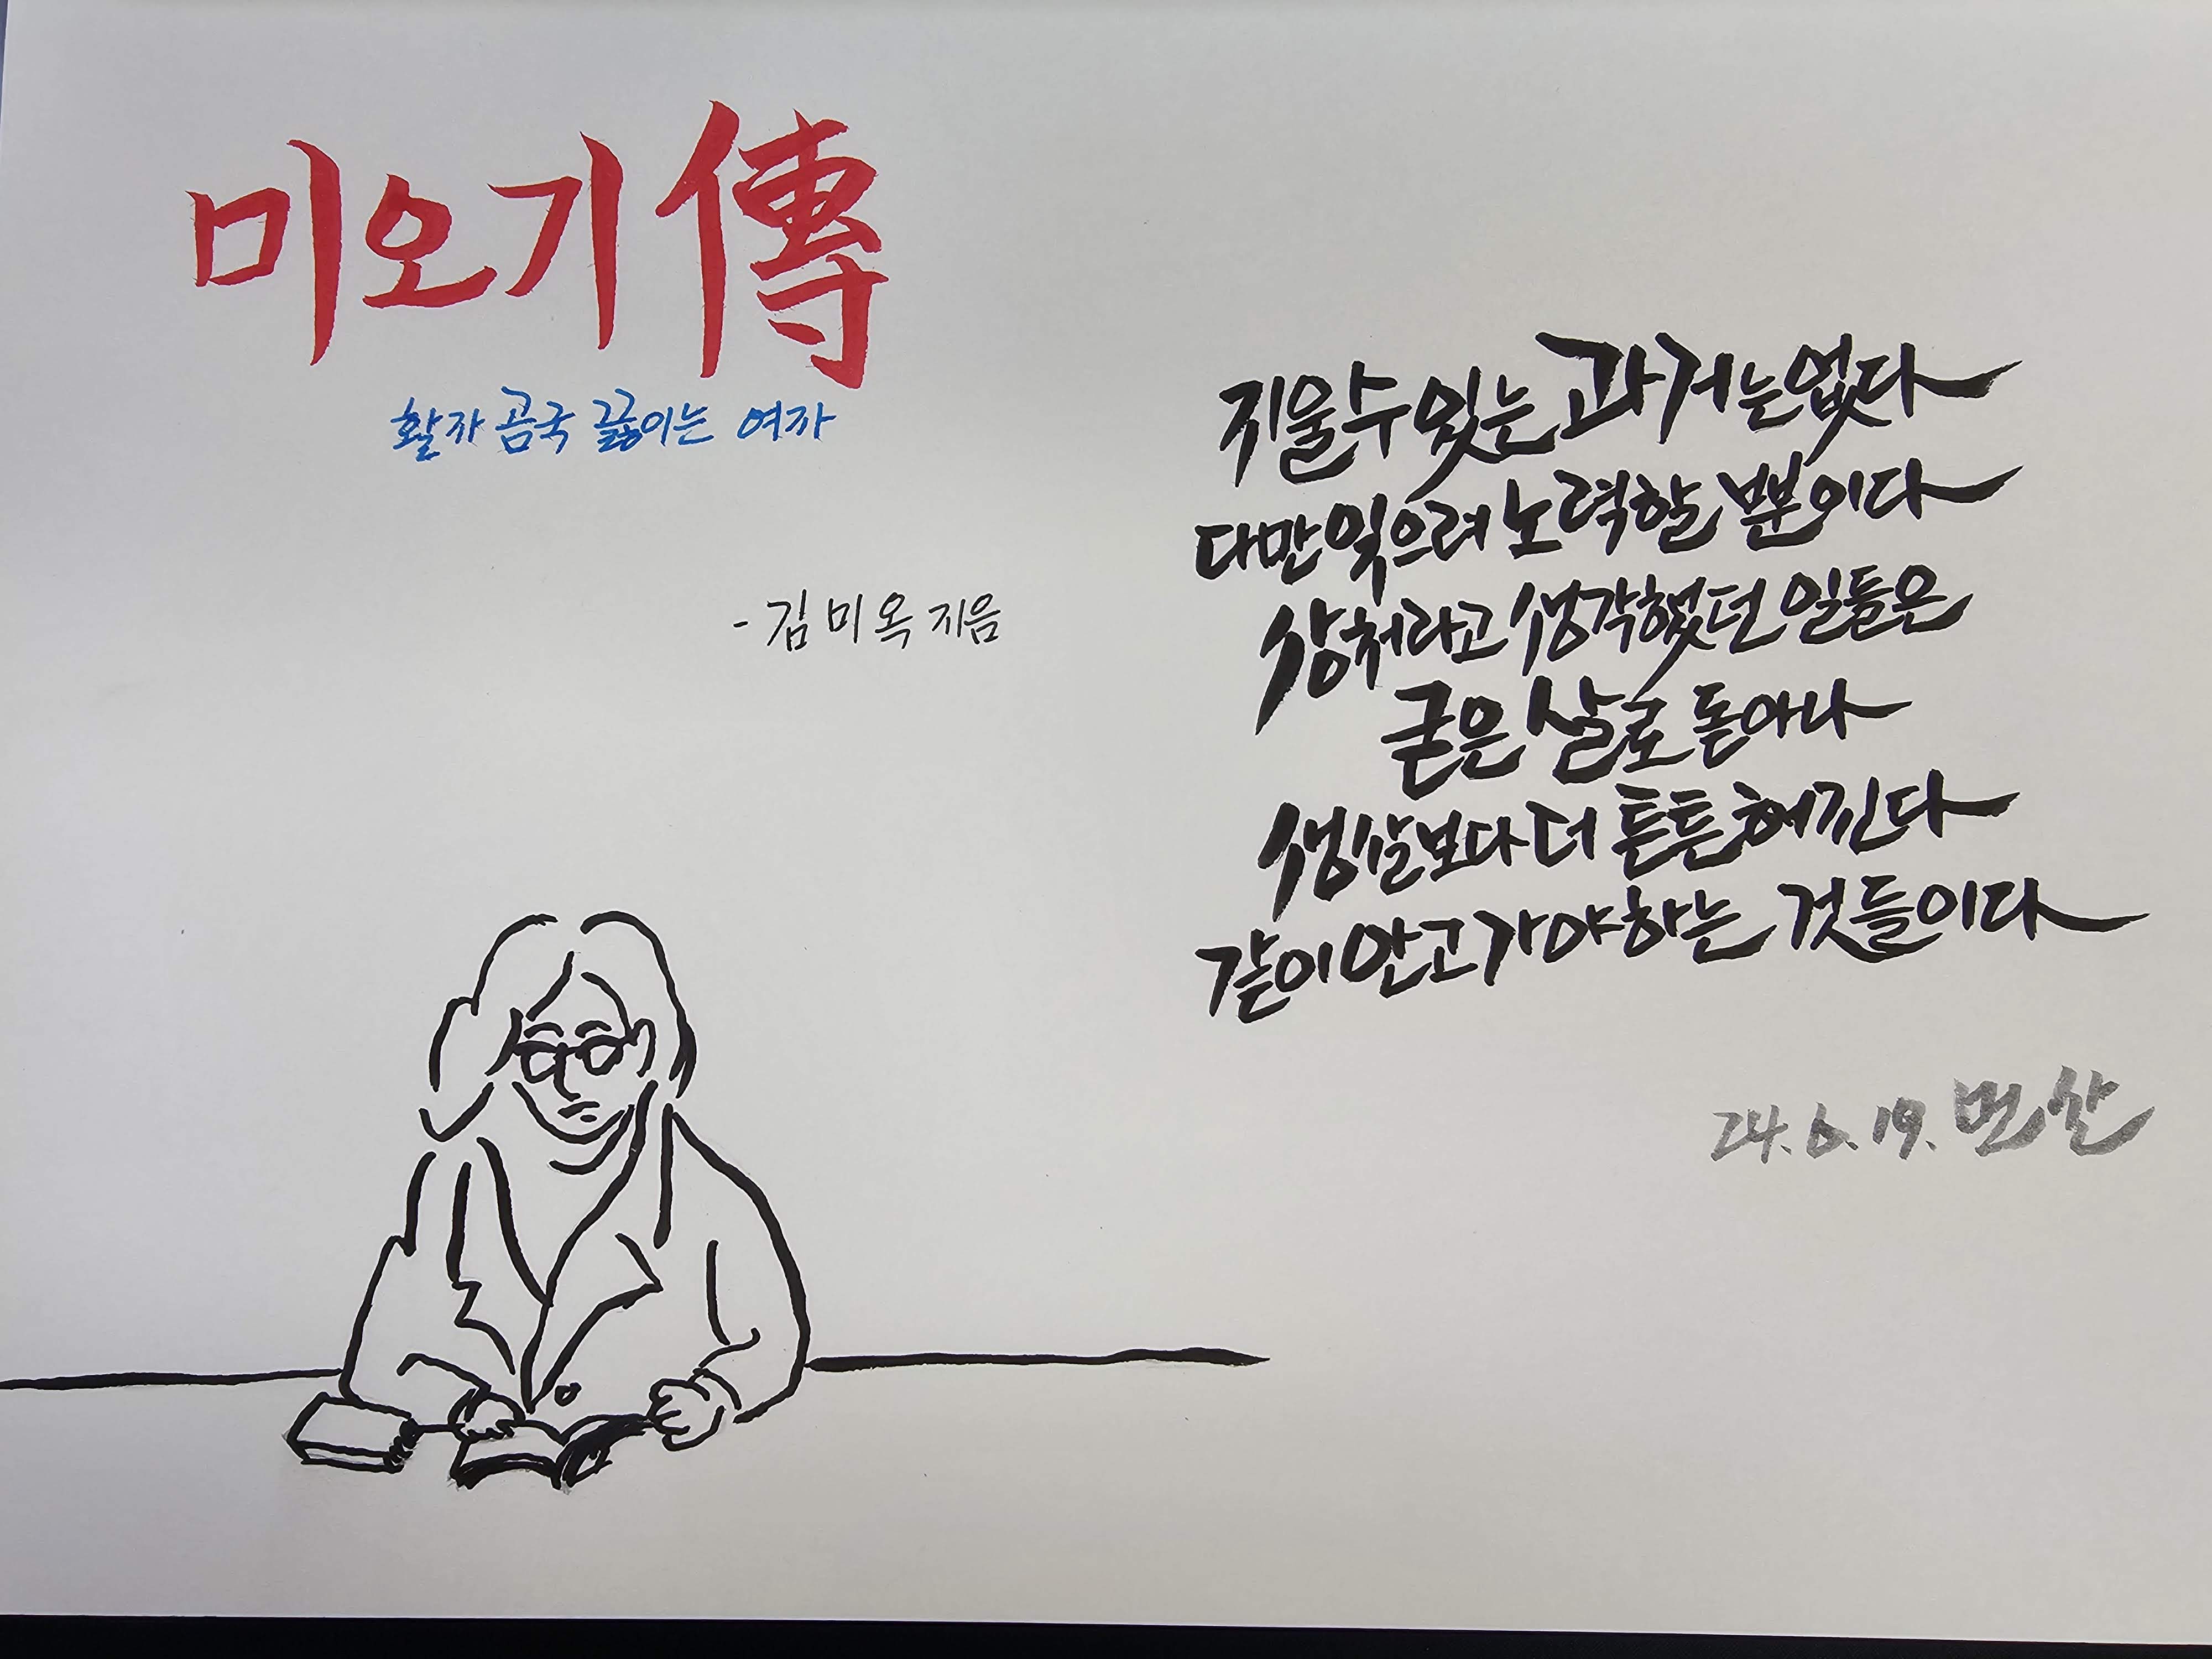 미오기傳
활자 곰국 끓이는 여자
- 김미옥 지음
지울 수 있는 과거는 없다
다만 잊으려 노력할 뿐이다
상처라고 생각했던 일들은
굳은 살로 돋아나
생살보다 더 튼튼해진다
같이 안고 가야 하는 것들이다
24.6.19. 번산